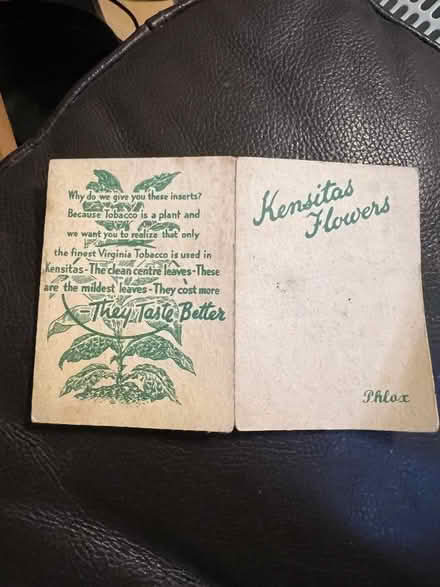 Why do we give you these inserts?
Because Tobacco is a plant and
we want you to realize that only
the finest Virginia Tobacco is used in
Kensitas - The clean centre leaves - These
are the mildest leaves - They cost more
- They Taste Better
Kensitas
Flowers
Phlox